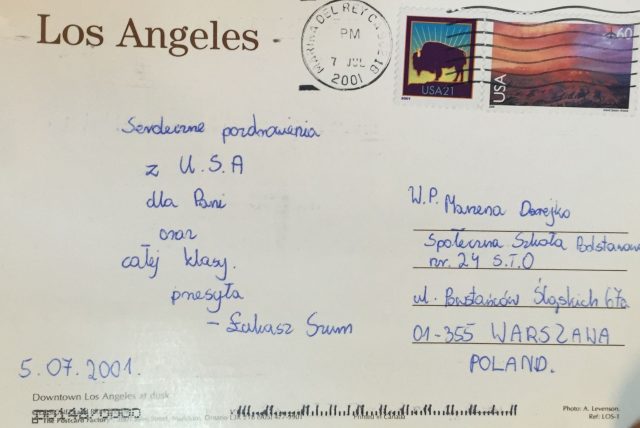 Los Angeles
MARINA DEL REY CA
PM
7 JUL
2001
USA21
2001
USA
60
Serdeczne pozdrowienia
z U.S.A
dla Pani
oraz
całej klasy.
przesyła
- Łukasz Szum
5.07.2001.
W.P. Marzena Dorejko
Społeczna Szkoła Podstawowa
nr. 24 S.T.O
ul. Powstańców Śląskich 67a
01-355 WARSZAWA
POLAND.
Downtown Los Angeles at dusk
The Postcard Factory
Printed in Canada
Photo: A. Levenson.
Ref: LOS-1